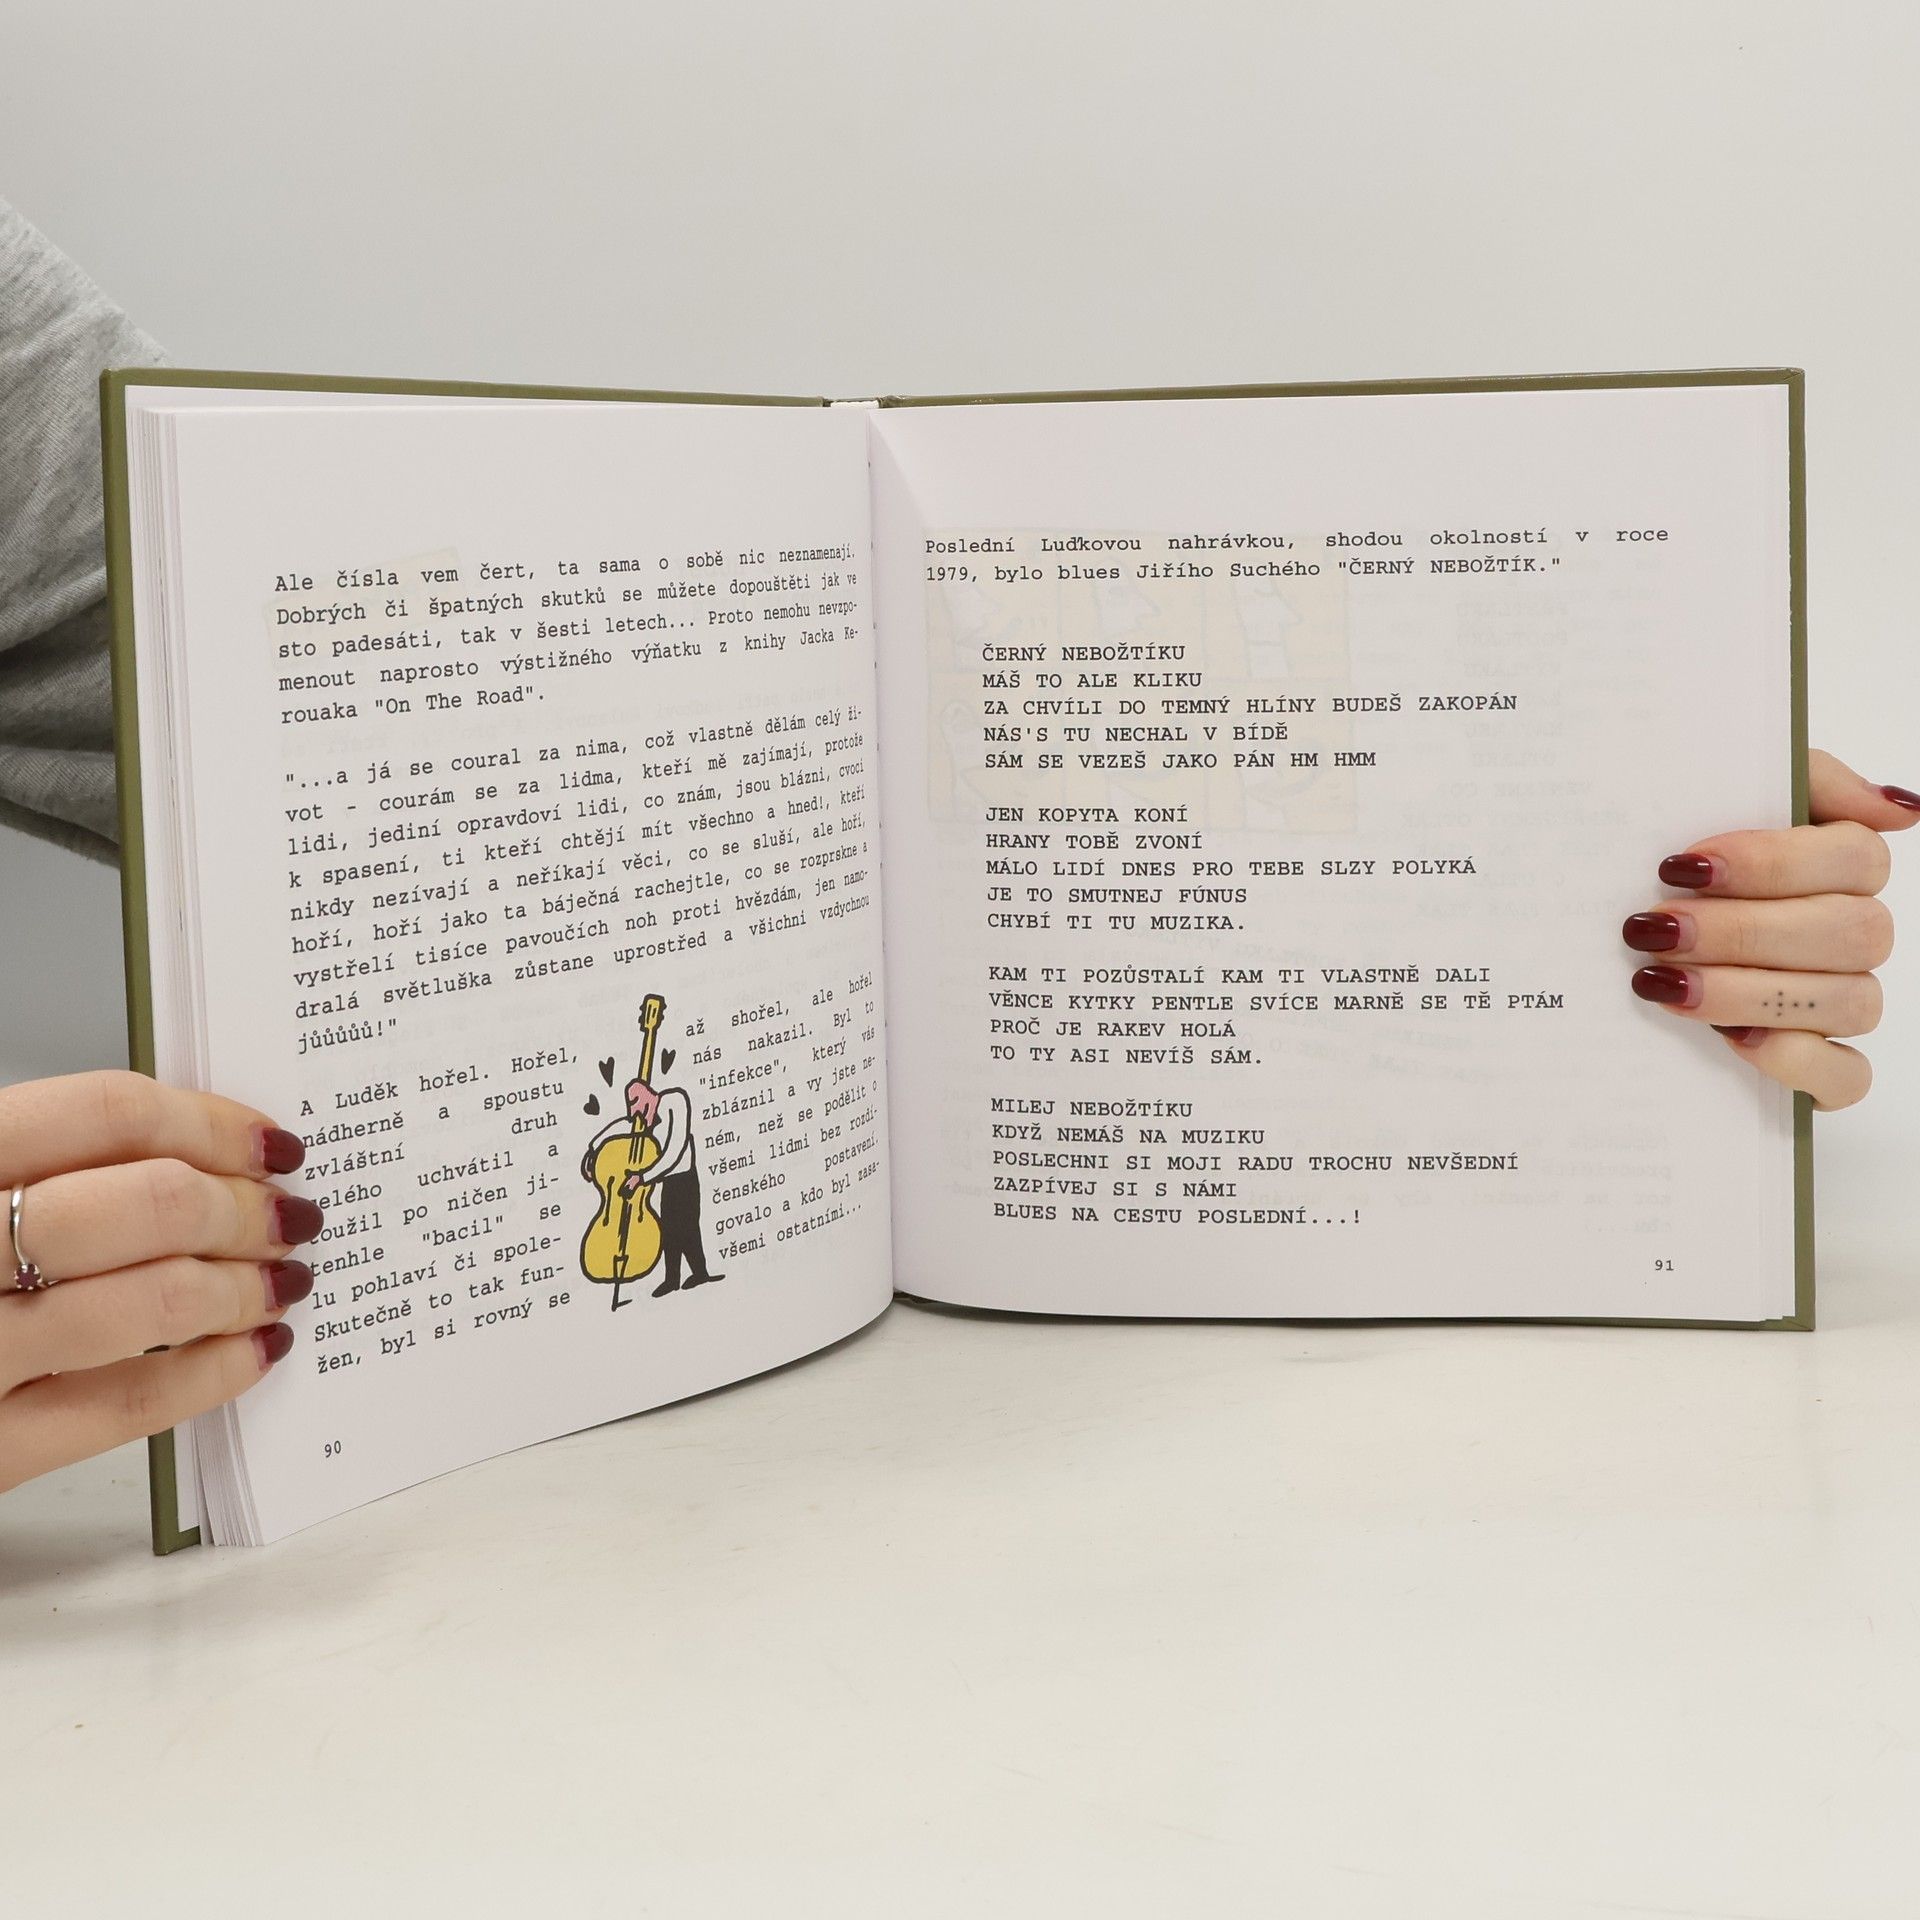 Ale čísla vem čert, ta sama o sobě nic neznamenají.
Dobrých či špatných skutků se můžete dopouštěti jak ve
sto padesáti, tak v šesti letech... Proto nemohu nevzpo-
menout naprosto výstižného výňatku z knihy Jacka Ke-
rouaka "On The Road".
"...a já se coural za nima, což vlastně dělám celý ži-
vot - courám se za lidma, kteří mě zajímají, protože
lidi, jediní opravdoví lidi, co znám, jsou blázni, cvoci
k spasení, ti kteří chtějí mít všechno a hned!, kteří
nikdy nezívají a neříkají věci, co se sluší, ale hoří,
hoří, hoří jako ta báječná rachejtle, co se rozprskne a
vystřelí tisíce pavoučích noh proti hvězdám, jen namo-
dralá světluška zůstane uprostřed a všichni vzdychnou
jůůůůů!"
A Luděk hořel. Hořel, až shořel, ale hořel
nádherně a spoustu nás nakazil. Byl to
zvláštní druh "infekce", který vás
celého uchvátil a zbláznil a vy jste ne-
toužil po ničen ji- ném, než se podělit o
tenhle "bacil" se všemi lidmi bez rozdí-
lu pohlaví či spole- čenského postavení.
Skutečně to tak fun- govalo a kdo byl zasa-
žen, byl si rovný se všemi ostatními...
90
Poslední Luďkovou nahrávkou, shodou okolností v roce
1979, bylo blues Jiřího Suchého "ČERNÝ NEBOŽTÍK."
ČERNÝ NEBOŽTÍKU
MÁŠ TO ALE KLIKU
ZA CHVÍLI DO TEMNÝ HLÍNY BUDEŠ ZAKOPÁN
NÁS'S TU NECHAL V BÍDĚ
SÁM SE VEZEŠ JAKO PÁN HM HMM
JEN KOPYTA KONÍ
HRANY TOBĚ ZVONÍ
MÁLO LIDÍ DNES PRO TEBE SLZY POLYKÁ
JE TO SMUTNEJ FÚNUS
CHYBÍ TI TU MUZIKA.
KAM TI POZŮSTALÍ KAM TI VLASTNĚ DALI
VĚNCE KYTKY PENTLE SVÍCE MARNĚ SE TĚ PTÁM
PROČ JE RAKEV HOLÁ
TO TY ASI NEVÍŠ SÁM.
MILEJ NEBOŽTÍKU
KDYŽ NEMÁŠ NA MUZIKU
POSLECHNI SI MOJI RADU TROCHU NEVŠEDNÍ
ZAZPÍVEJ SI S NÁMI
BLUES NA CESTU POSLEDNÍ...!
91